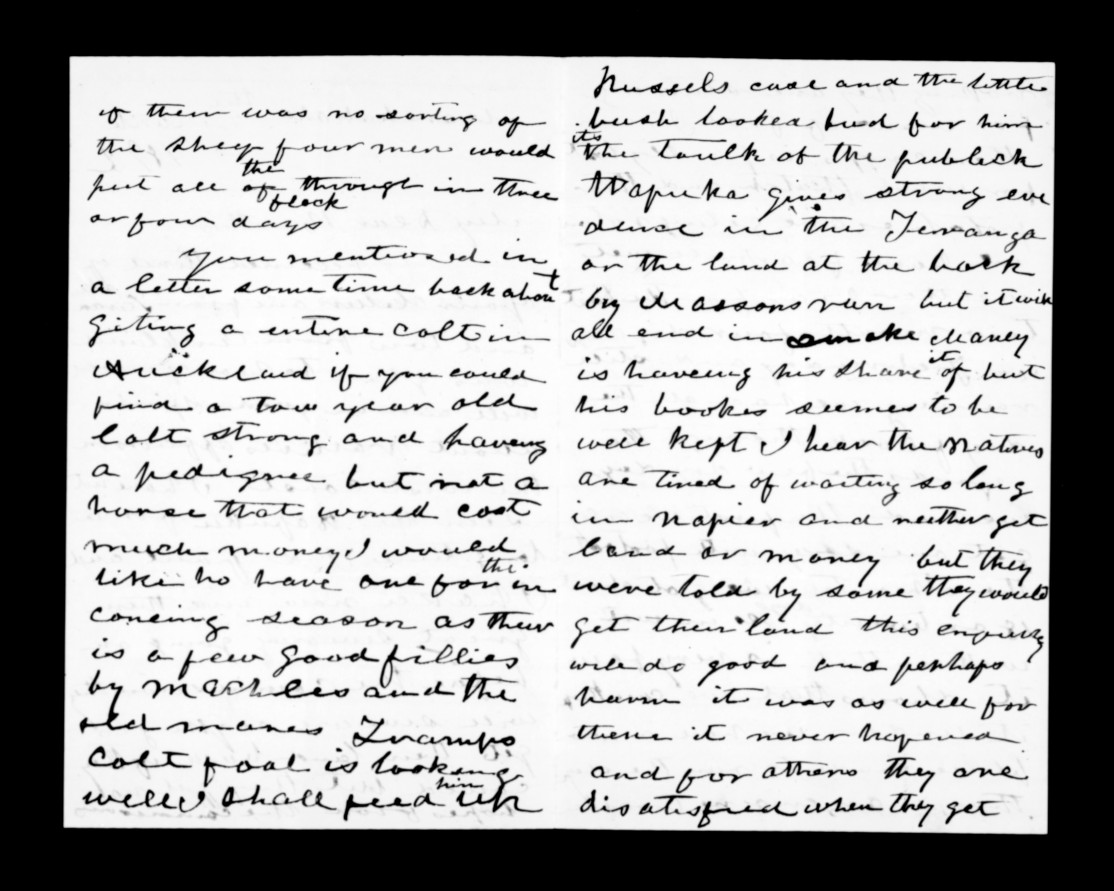 if there was no sorting of
the sheep four men would
put all of the flock through in three
or four days
You mentioned in
a letter some time back about
giting a entire colt in
Auckland if you could
find a tow year old
Colt strong and haveng
a pedegree but not a
horse that would cost
much money I would
like to have one for the in
comeing season as ther
is a few good fillies
by and the
old mares Tramps
Colt foal is lookeng
well I shall feed him like
Russels case and the little
bush looked bad for him
its the taulk of the publeck
Wapuka gives strong eve
dence in the
or the land at the back
by Massons run but it will
all end in smoke Maney
is haveing his share of it but
his bookes seemes to be
well kept I hear the Natives
are tired of waiting so long
in Napier and neither get
land or money but they
were told by some they would
get their land this enquiery
will do good and perhaps
harm it was as well for
there it never hapened
and for others they are
disatisfied when they get